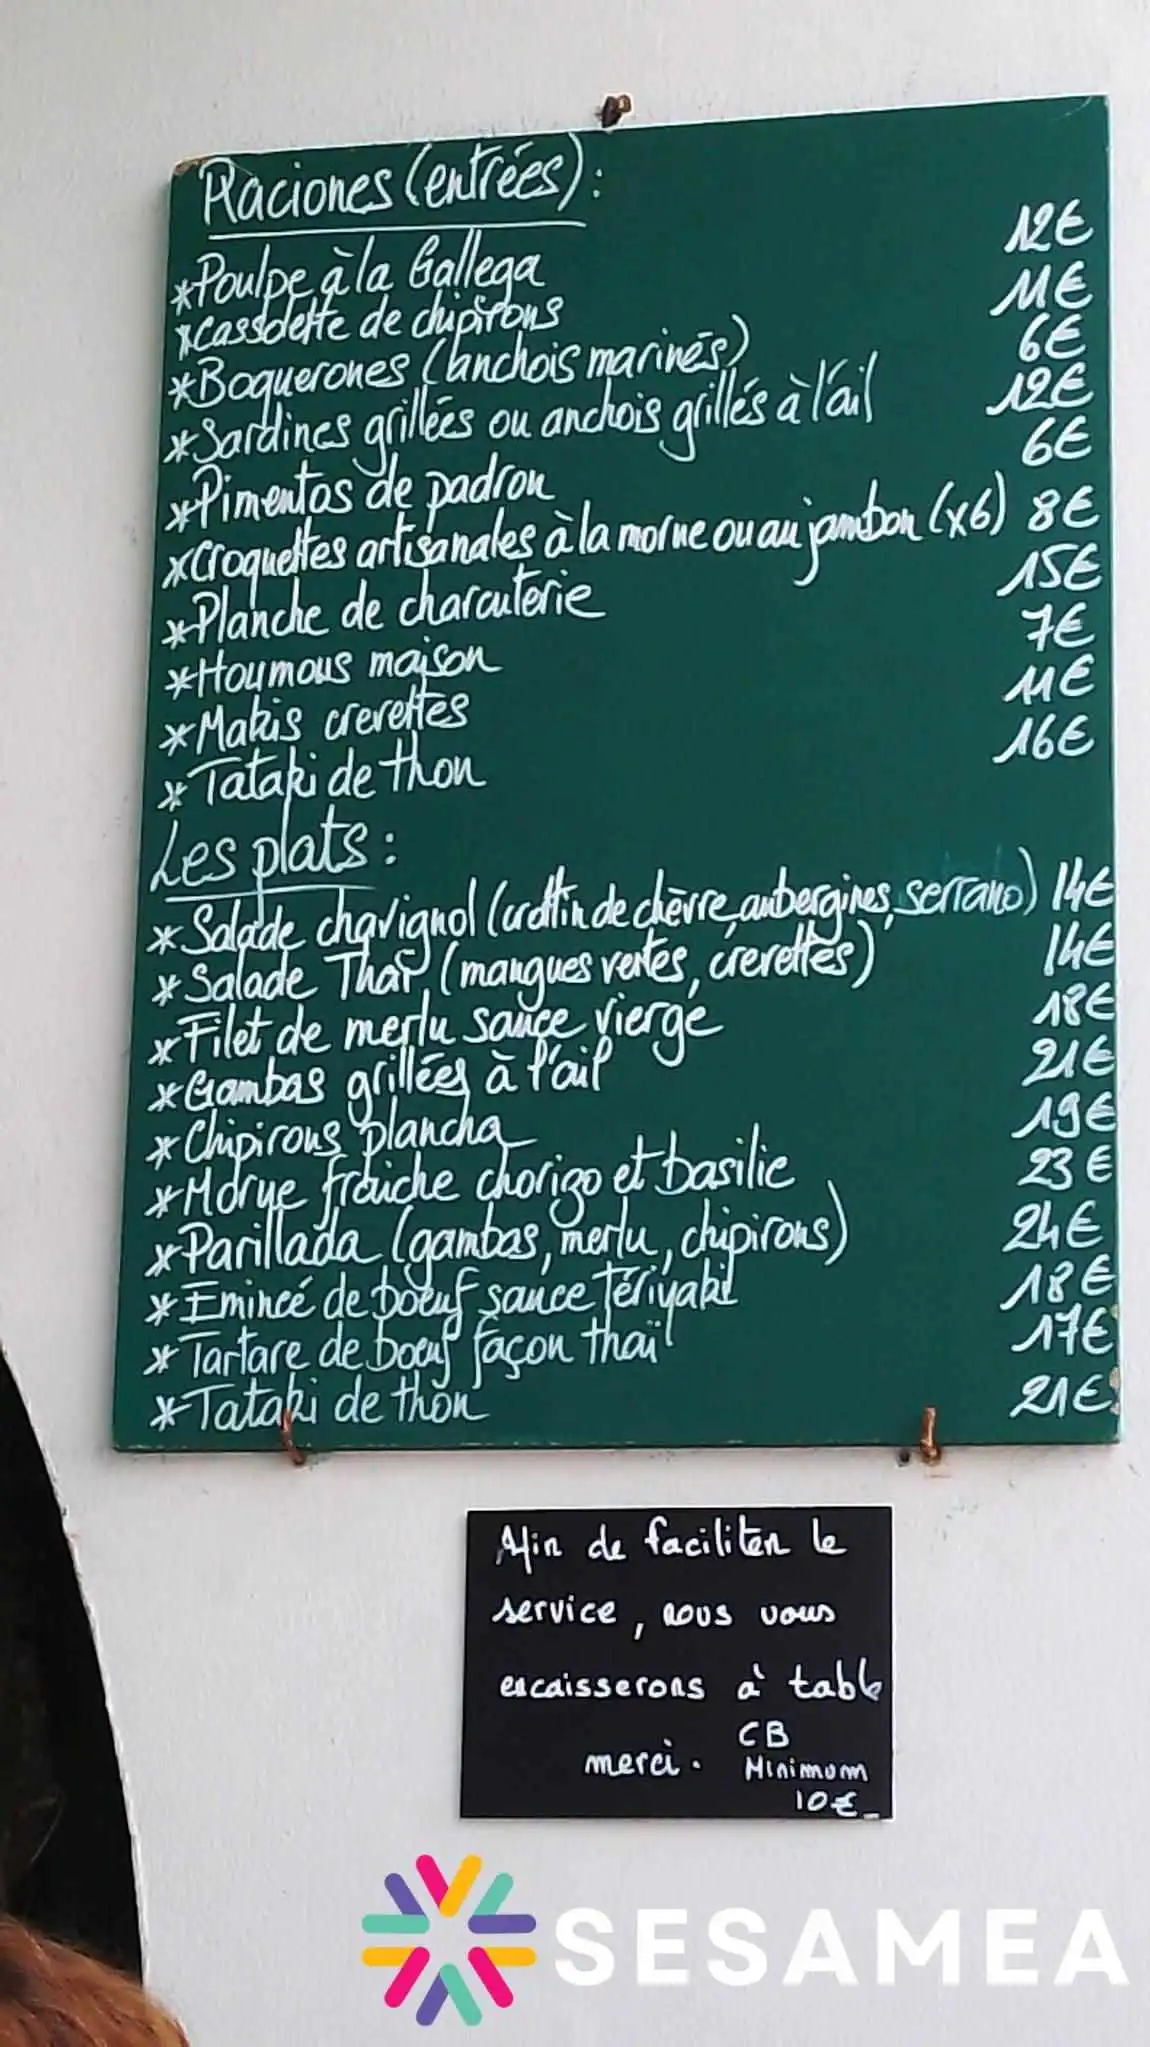 Raciones (entrées):
*Poulpe à la Gallega 12€
*Cassolette de chipirons 11€
*Boquerones (anchois marinés) 6€
*Sardines grillées ou anchois grillés à l'ail 12€
*Pimentos de padron 6€
*Croquettes artisanales à la morue ou au jambon (x6) 8€
*Planche de charcuterie 15€
*Houmous maison 7€
*Makis crevettes 11€
*Tataki de thon 16€
Les plats:
*Salade chavignol (crottin de chèvre, aubergines, serrano) 14€
*Salade Thaï (mangues vertes, crevettes) 14€
*Filet de merlu sauce vierge 18€
*Gambas grillées à l'ail 21€
*Chipirons plancha 19€
*Morue fraîche chorizo et basilic 23€
*Parillada (gambas, merlu, chipirons) 24€
*Émincé de boeuf sauce tériyaki 18€
*Tartare de boeuf façon thaï 17€
*Tataki de thon 21€
Afin de faciliter le
service, nous vous
encaisserons à table
merci. CB
Minimum
10€
SESAMEA